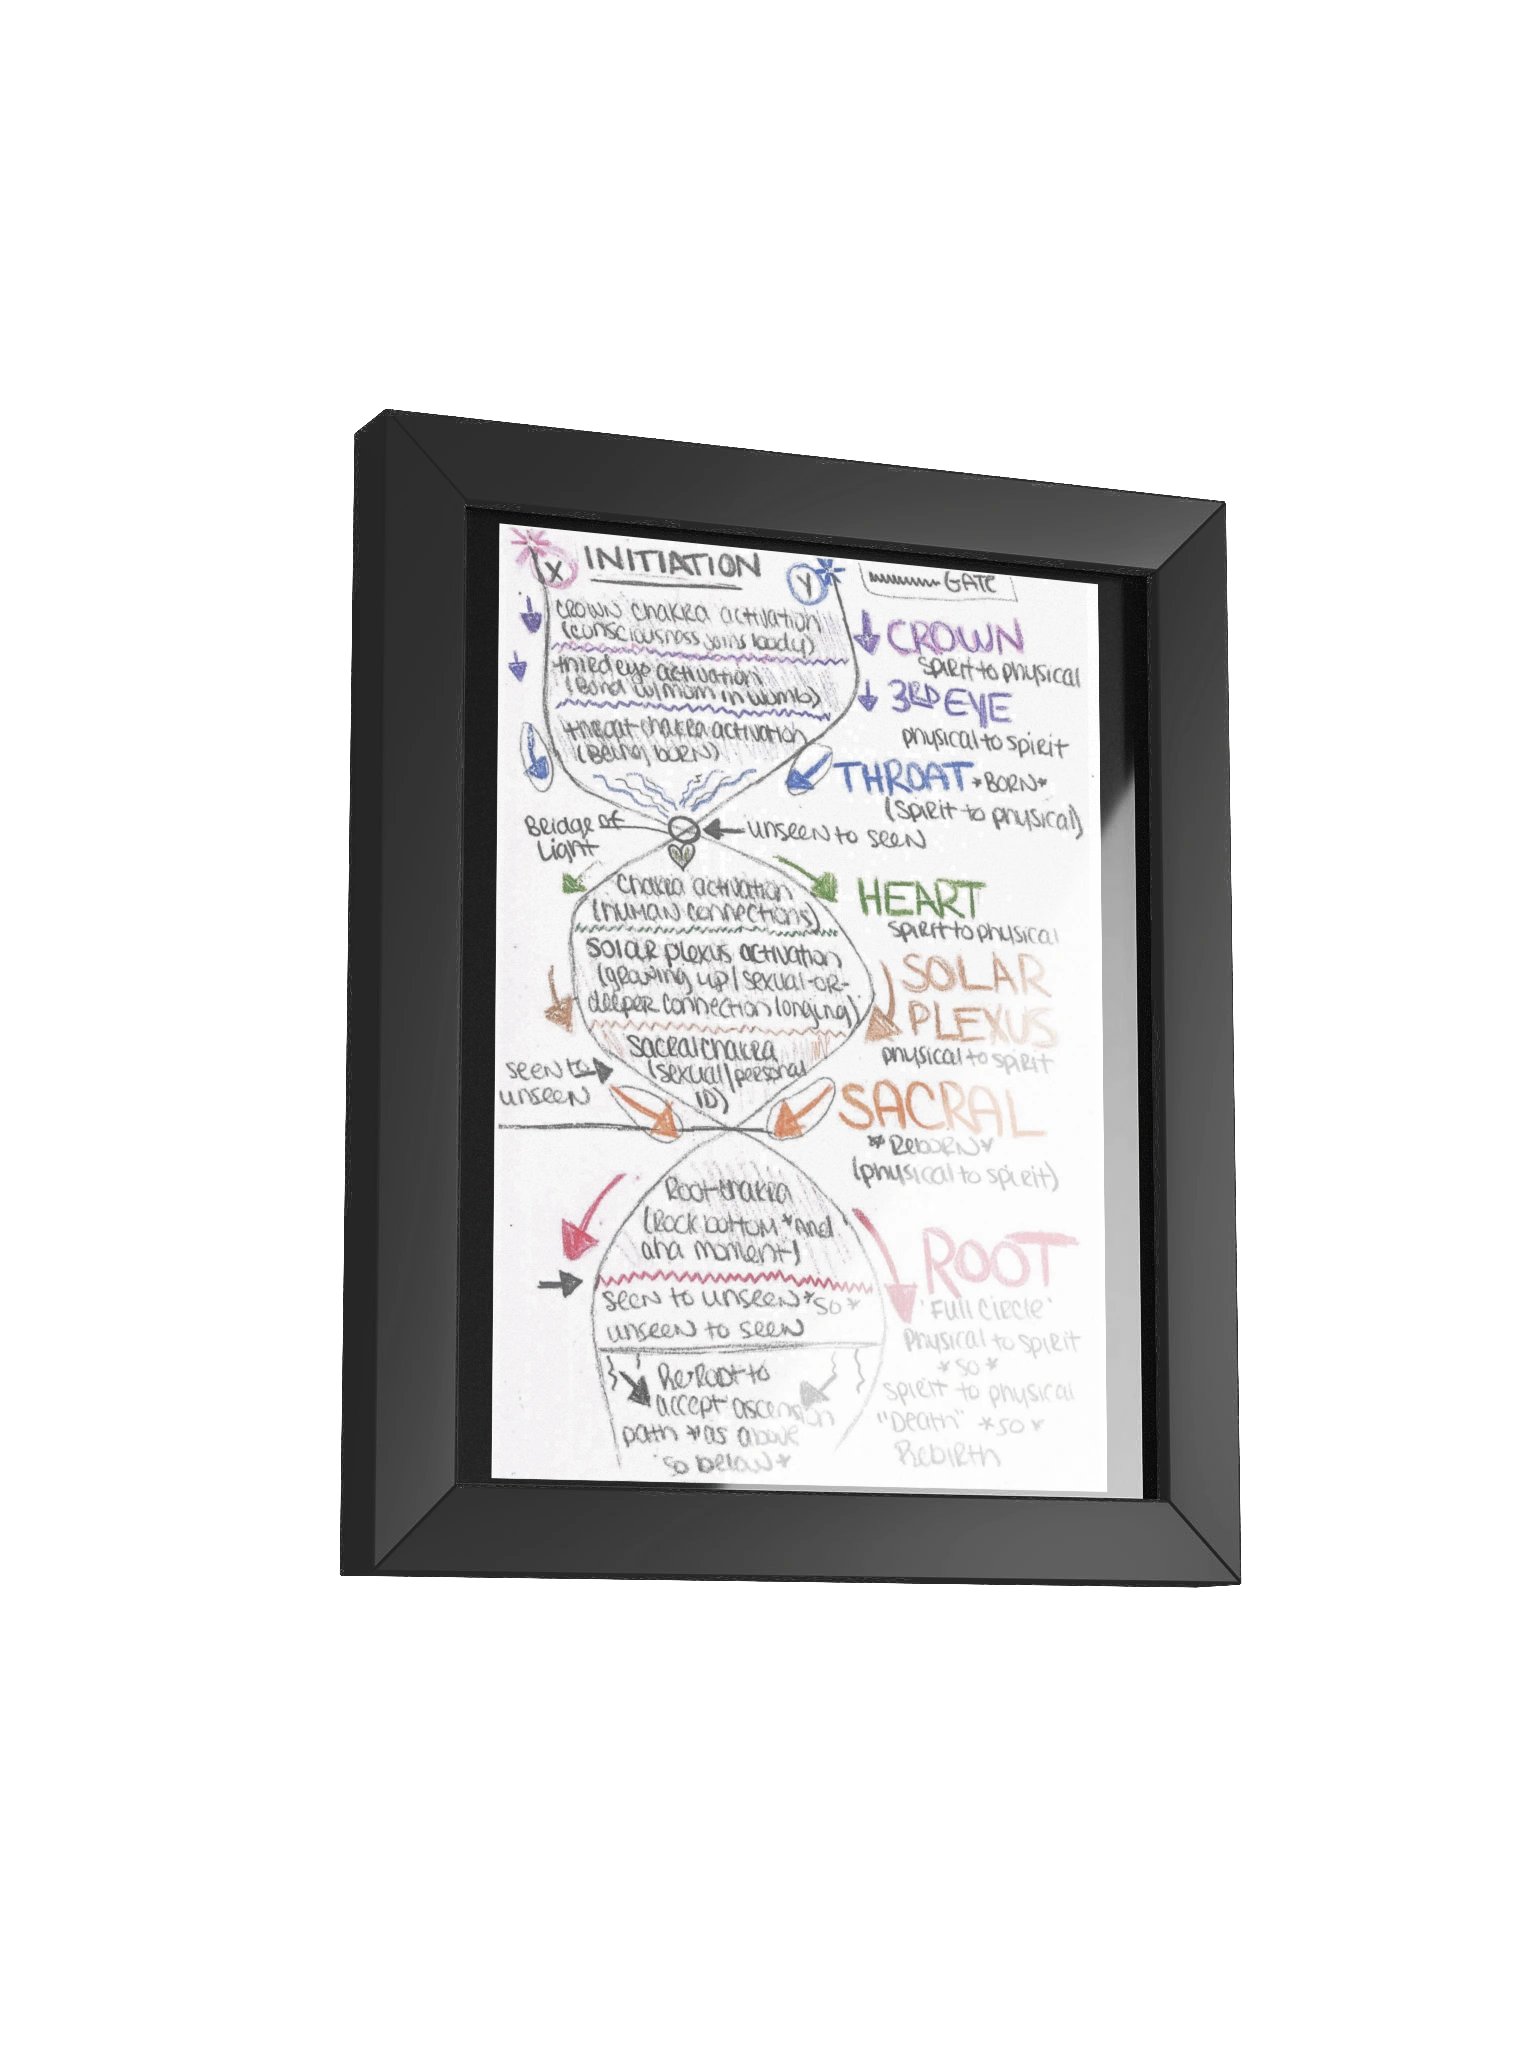 X
INITIATION
Y
GATE
CROWN chakra activation
(consciousness joins body)
CROWN
spirit to physical
third eye activation
(Bond w/mum in womb)
3RD EYE
physical to spirit
throat chakra activation
(Being born)
THROAT *BORN*
(spirit to physical)
Bridge of
Light
unseen to seen
chakra activation
(human connections)
HEART
spirit to physical
solar plexus activation
(growing up/sexual-or-
deeper connection longing)
SOLAR
PLEXUS
physical to spirit
sacral chakra
(sexual/personal
ID)
seen to
unseen
SACRAL
*Reborn*
(physical to spirit)
Root chakra
(Rock bottom *and
aha moment)
ROOT
'Full Circle'
physical to spirit
*so*
spirit to physical
"Death" *so*
Rebirth
seen to unseen *so*
unseen to seen
Re-Root to
accept ascension
path *as above
so below*